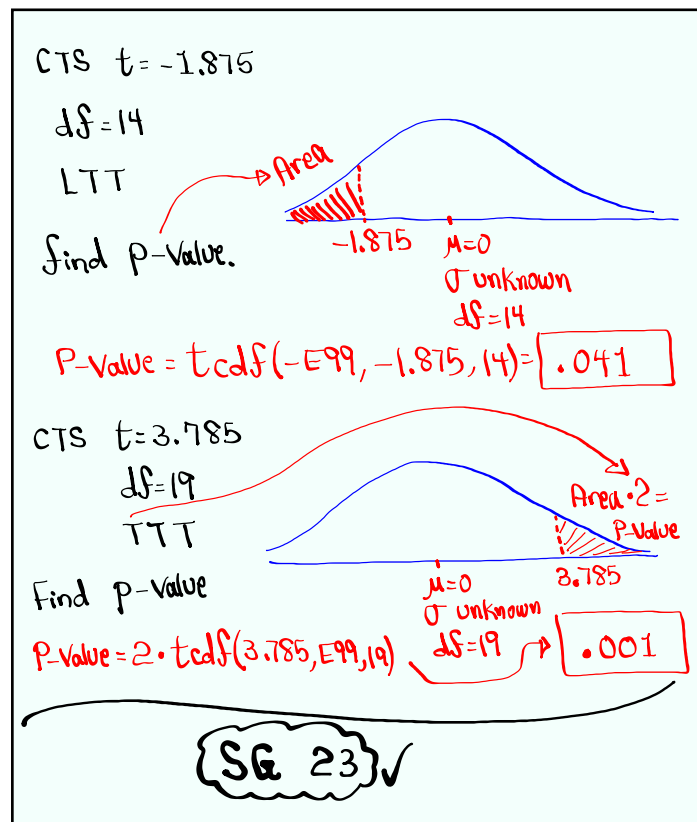 CTS t=-1.875
df=14
LTT
Area
find p-value.
-1.875
μ=0
σ unknown
df=14
P-Value = tcdf(-E99, -1.875, 14)= .041
CTS t=3.785
df=19
TTT
Area·2=
P-Value
Find p-value
3.785
μ=0
σ unknown
df=19
P-Value=2·tcdf(3.785,E99,19)
.001
SG 23